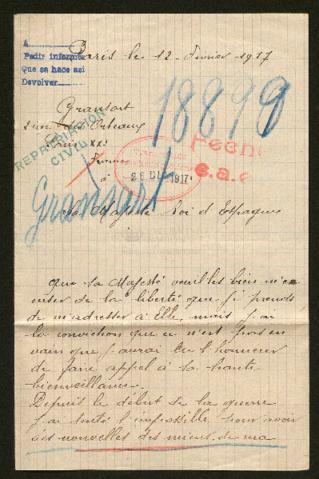 A
Pedir informes
que se hace así
Devolver
Paris le 12 Février 1917
18899
Gransart
5 rue des Orteaux
Paris XX:
France
REPATRIATION
CIVIL
à
26 DIC 1917
Gransart
Sa Majesté Roi d'Espagne
Que sa Majesté veuille bien m'ex
cuser de la liberté que je prends
de m'adresser à Elle, mais j'ai
la conviction que ce n'est pas en
vain que j'aurai eu l'honneur
de faire appel à sa haute
bienveillance.
Depuis le début de la guerre
j'ai tenté l'impossible pour avoir
des nouvelles des miens, de ma